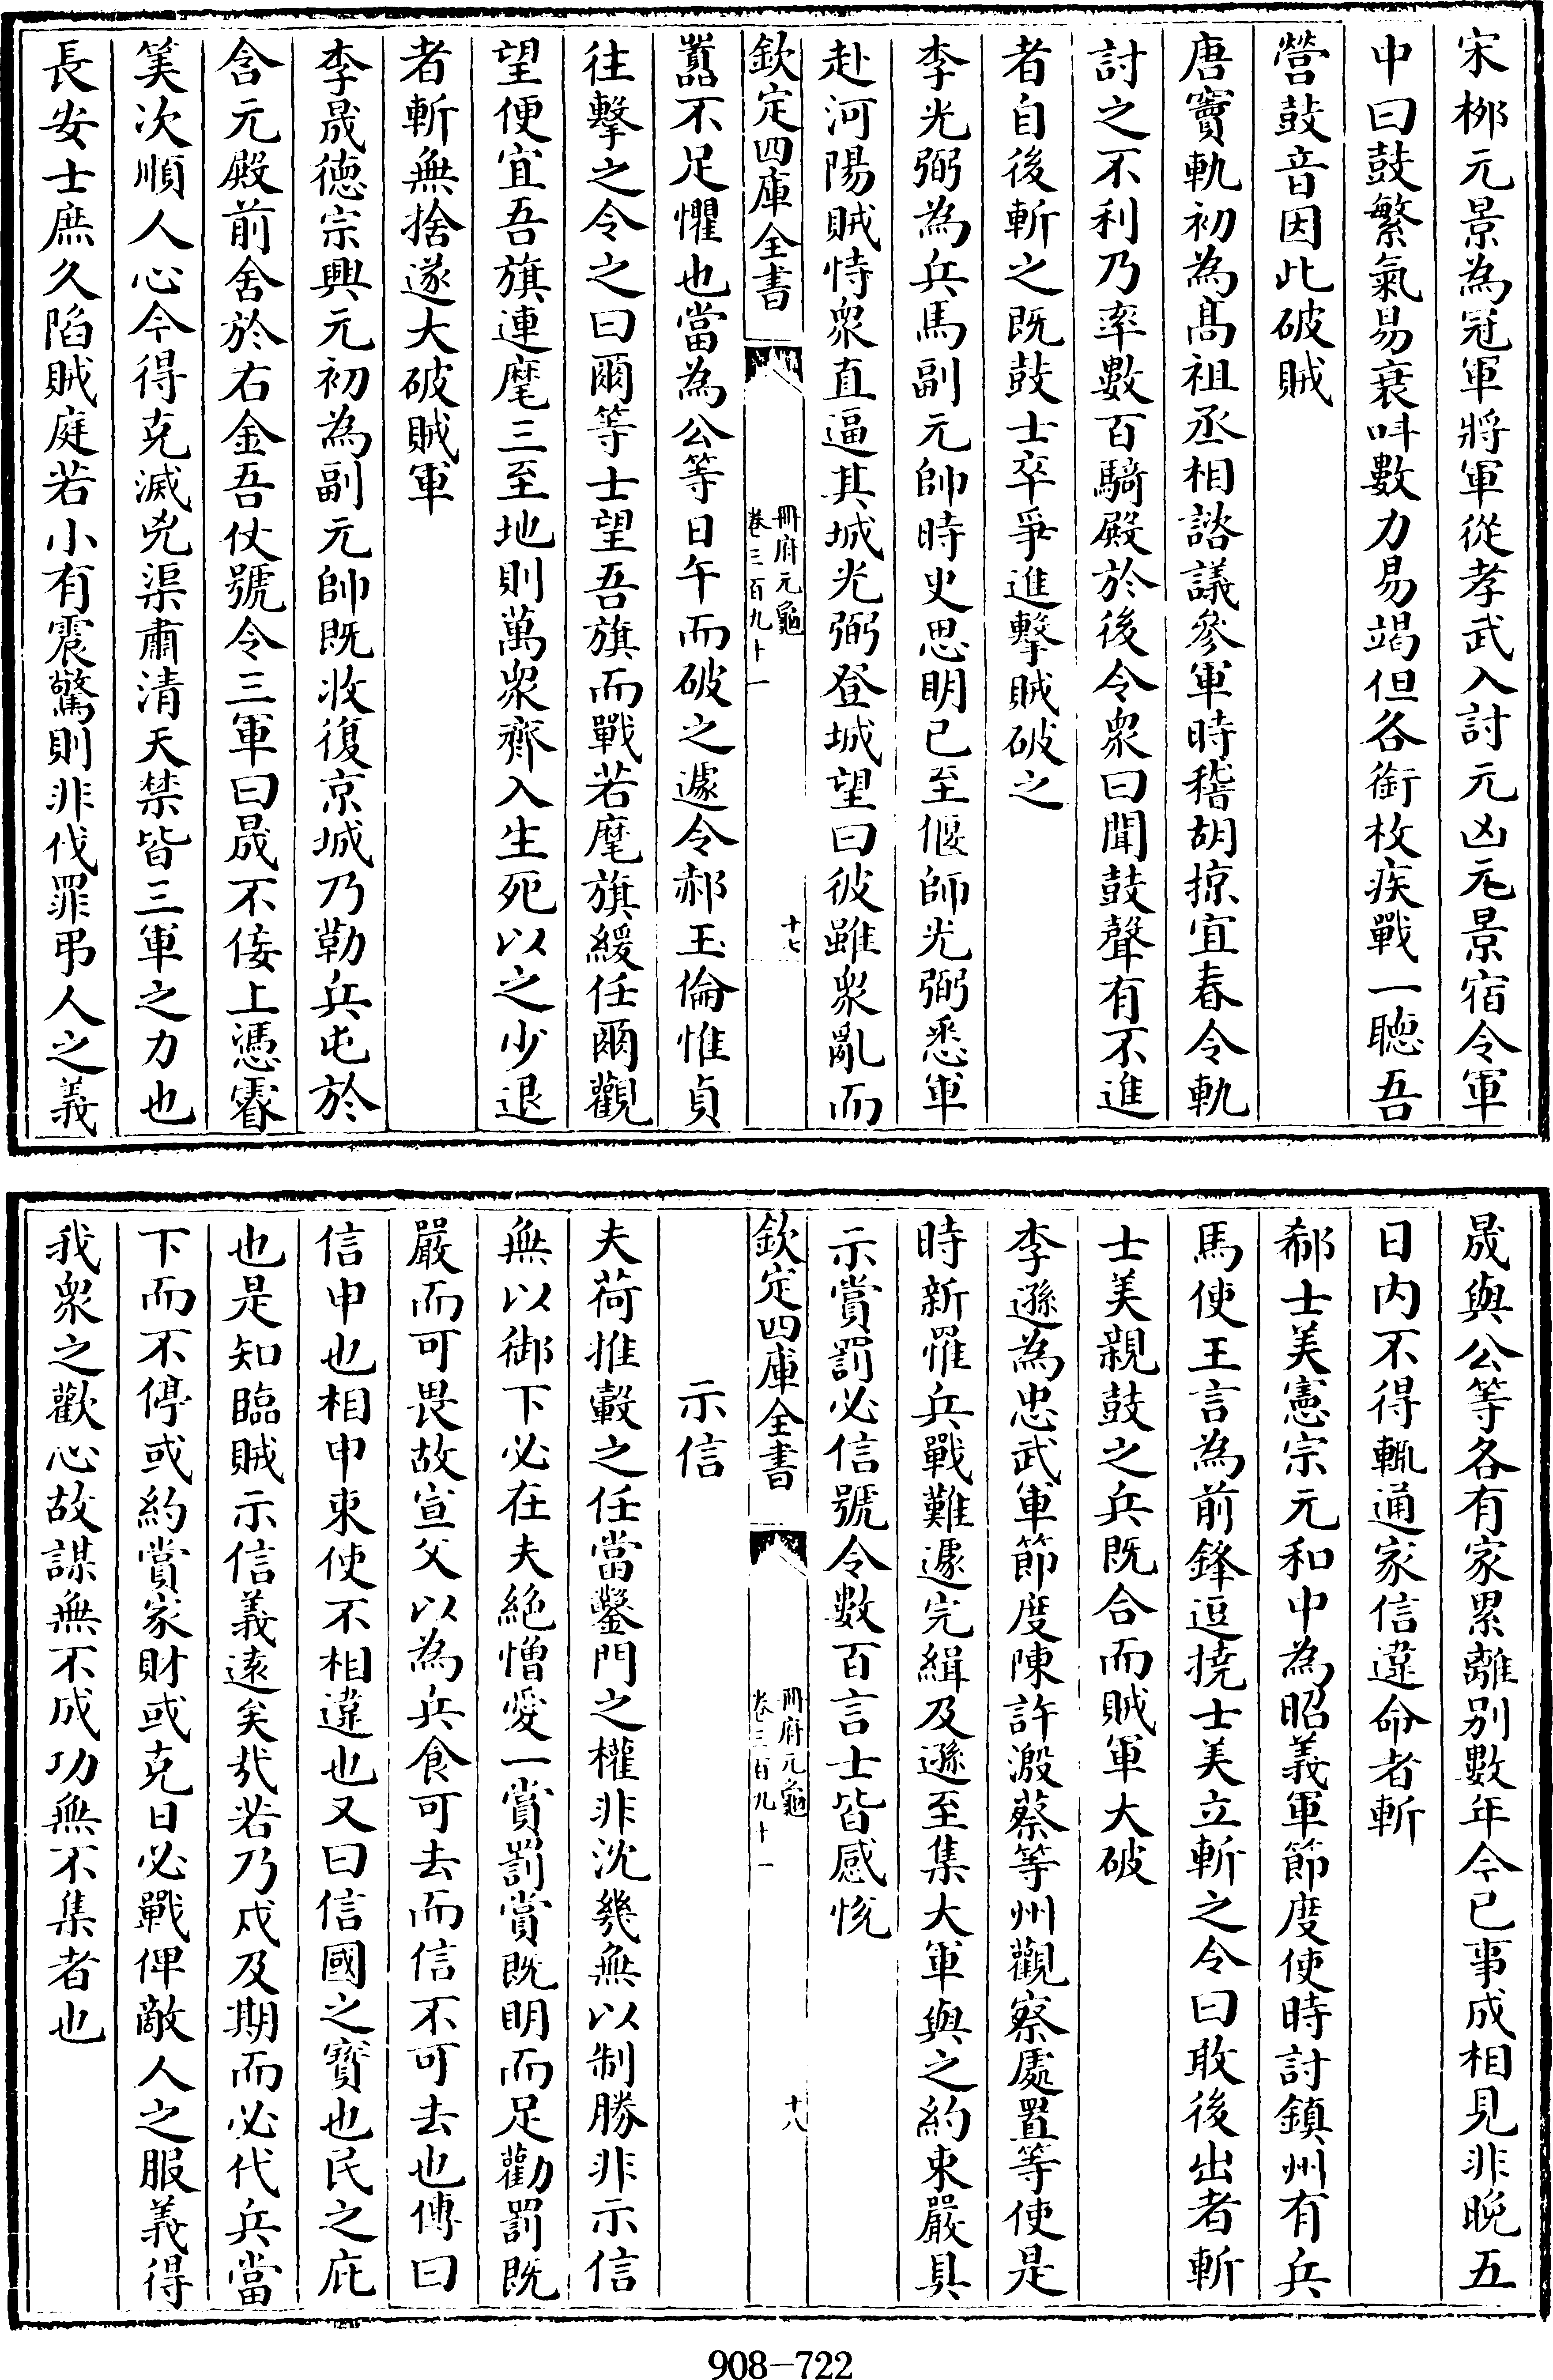 宋栁元景為冠軍將軍從孝武入討元凶元景宿令軍
中曰鼓繁氣易衰呌數力易竭但各銜枚疾戰一聽吾
營鼓音因此破賊
唐竇軌初為髙祖丞相諮議參軍時稽胡掠宜春令軌
討之不利乃率數百騎殿於後令衆曰聞鼓聲有不進
者自後斬之既鼓士卒爭進擊賊破之
李光弼為兵馬副元帥時史思明已至偃師光弼悉軍
赴河陽賊恃衆直逼其城光弼登城望曰彼雖衆亂而
欽定四庫全書
冊府元龜
卷三百九十一
十七
囂不足懼也當為公等日午而破之遽令郝玉倫惟貞
往擊之令之曰爾等士望吾旗而戰若麾旗緩任爾觀
望便宜吾旗連麾三至地則萬衆齊入生死以之少退
者斬無捨遂大破賊軍
李晟德宗興元初為副元帥既收復京城乃勒兵屯於
含元殿前舍於右金吾仗號令三軍曰晟不佞上憑睿
筭次順人心今得克滅兇渠肅清天禁皆三軍之力也
長安士庶久陷賊庭若小有震驚則非伐罪弔人之義
晟與公等各有家累離别數年今已事成相見非晩五
日内不得輙通家信違命者斬
郗士美憲宗元和中為昭義軍節度使時討鎮州有兵
馬使王言為前鋒逗撓士美立斬之令曰敢後出者斬
士美親鼓之兵既合而賊軍大破
李遜為忠武軍節度陳許溵蔡等州觀察處置等使是
時新罹兵戰難遽完緝及遜至集大軍與之約束嚴具
示賞罰必信號令數百言士皆感恱
欽定四庫全書
冊府元龜
卷三百九十一
十八
示信
夫荷推轂之任當鑿門之權非沈幾無以制勝非示信
無以御下必在夫絶憎愛一賞罰賞既明而足勸罰既
嚴而可畏故宣父以為兵食可去而信不可去也傳曰
信申也相申束使不相違也又曰信國之寳也民之庇
也是知臨賊示信義逺矣哉若乃戍及期而必代兵當
下而不停或約賞家財或克日必戰俾敵人之服義得
我衆之歡心故謀無不成功無不集者也
908-722